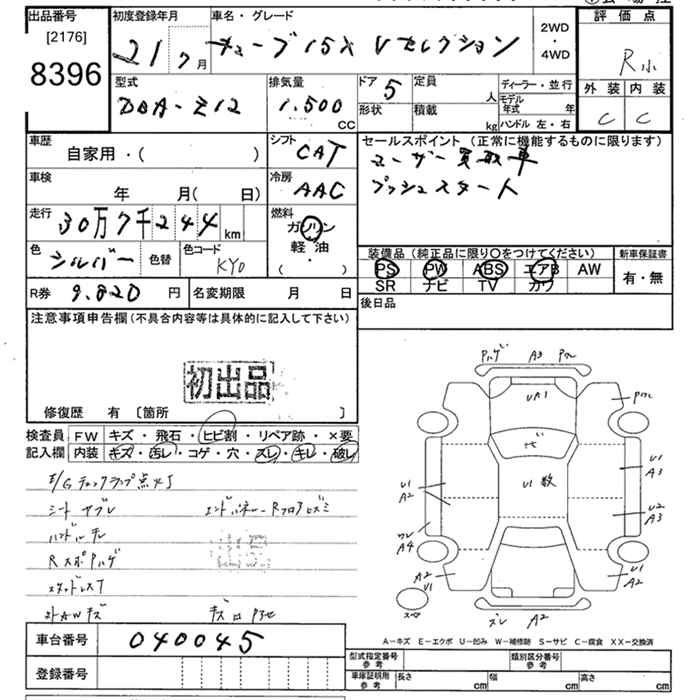 出品番号 初度登録年月 車名・グレード 評価点
[2176]
8396
21 7月 キューブ 15X Vセレクション 2WD・4WD R
型式 排気量 ドア 定員 ディーラー・並行 外装 内装
DBA-Z12 1.500 CC 5 人 モデル年式 年 C C
形状 積載 kg ハンドル 左・右
車歴 シフト セールスポイント (正常に機能するものに限ります)
自家用・( ) CAT ユーザー買取車
車検 冷房 プッシュスタート
年 月(日) AAC
走行 燃料
30万7千244 km ガソリン
軽・油
( )
色 シルバー 色替 色コード KY0
装備品 (純品に限り〇をつけてください) 新車保証書
PS PW ABS エアB AW 有・無
SR ナビ TV カワ
R券 9.820 円 名変期限 月 日
後日品
注意事項申告欄(不具合内容等は具体的に記入して下さい)
初出品
修復歴 有 〔箇所 〕
検査員 FW キズ・飛石・ヒビ割・リペア跡・×要
記入欄 内装 キズ・汚レ・コゲ・穴・スレ・キレ・破レ
E/Gチェックランプ点灯
シートヤブレ
ハンドルスレ
スタッドレス
A3
UA1
U1
A2
A4
U1
A3
U2
A3
U1
A2
A2
U1
A2
A-キズ E-エクボ U-凹み W-補修跡 S-サビ C-腐食 XX-交換済
車台番号 040045
登録番号
型式指定番号 参考 類別区分番号 参考
車庫証明用 参考 長さ cm 幅 cm 高さ cm